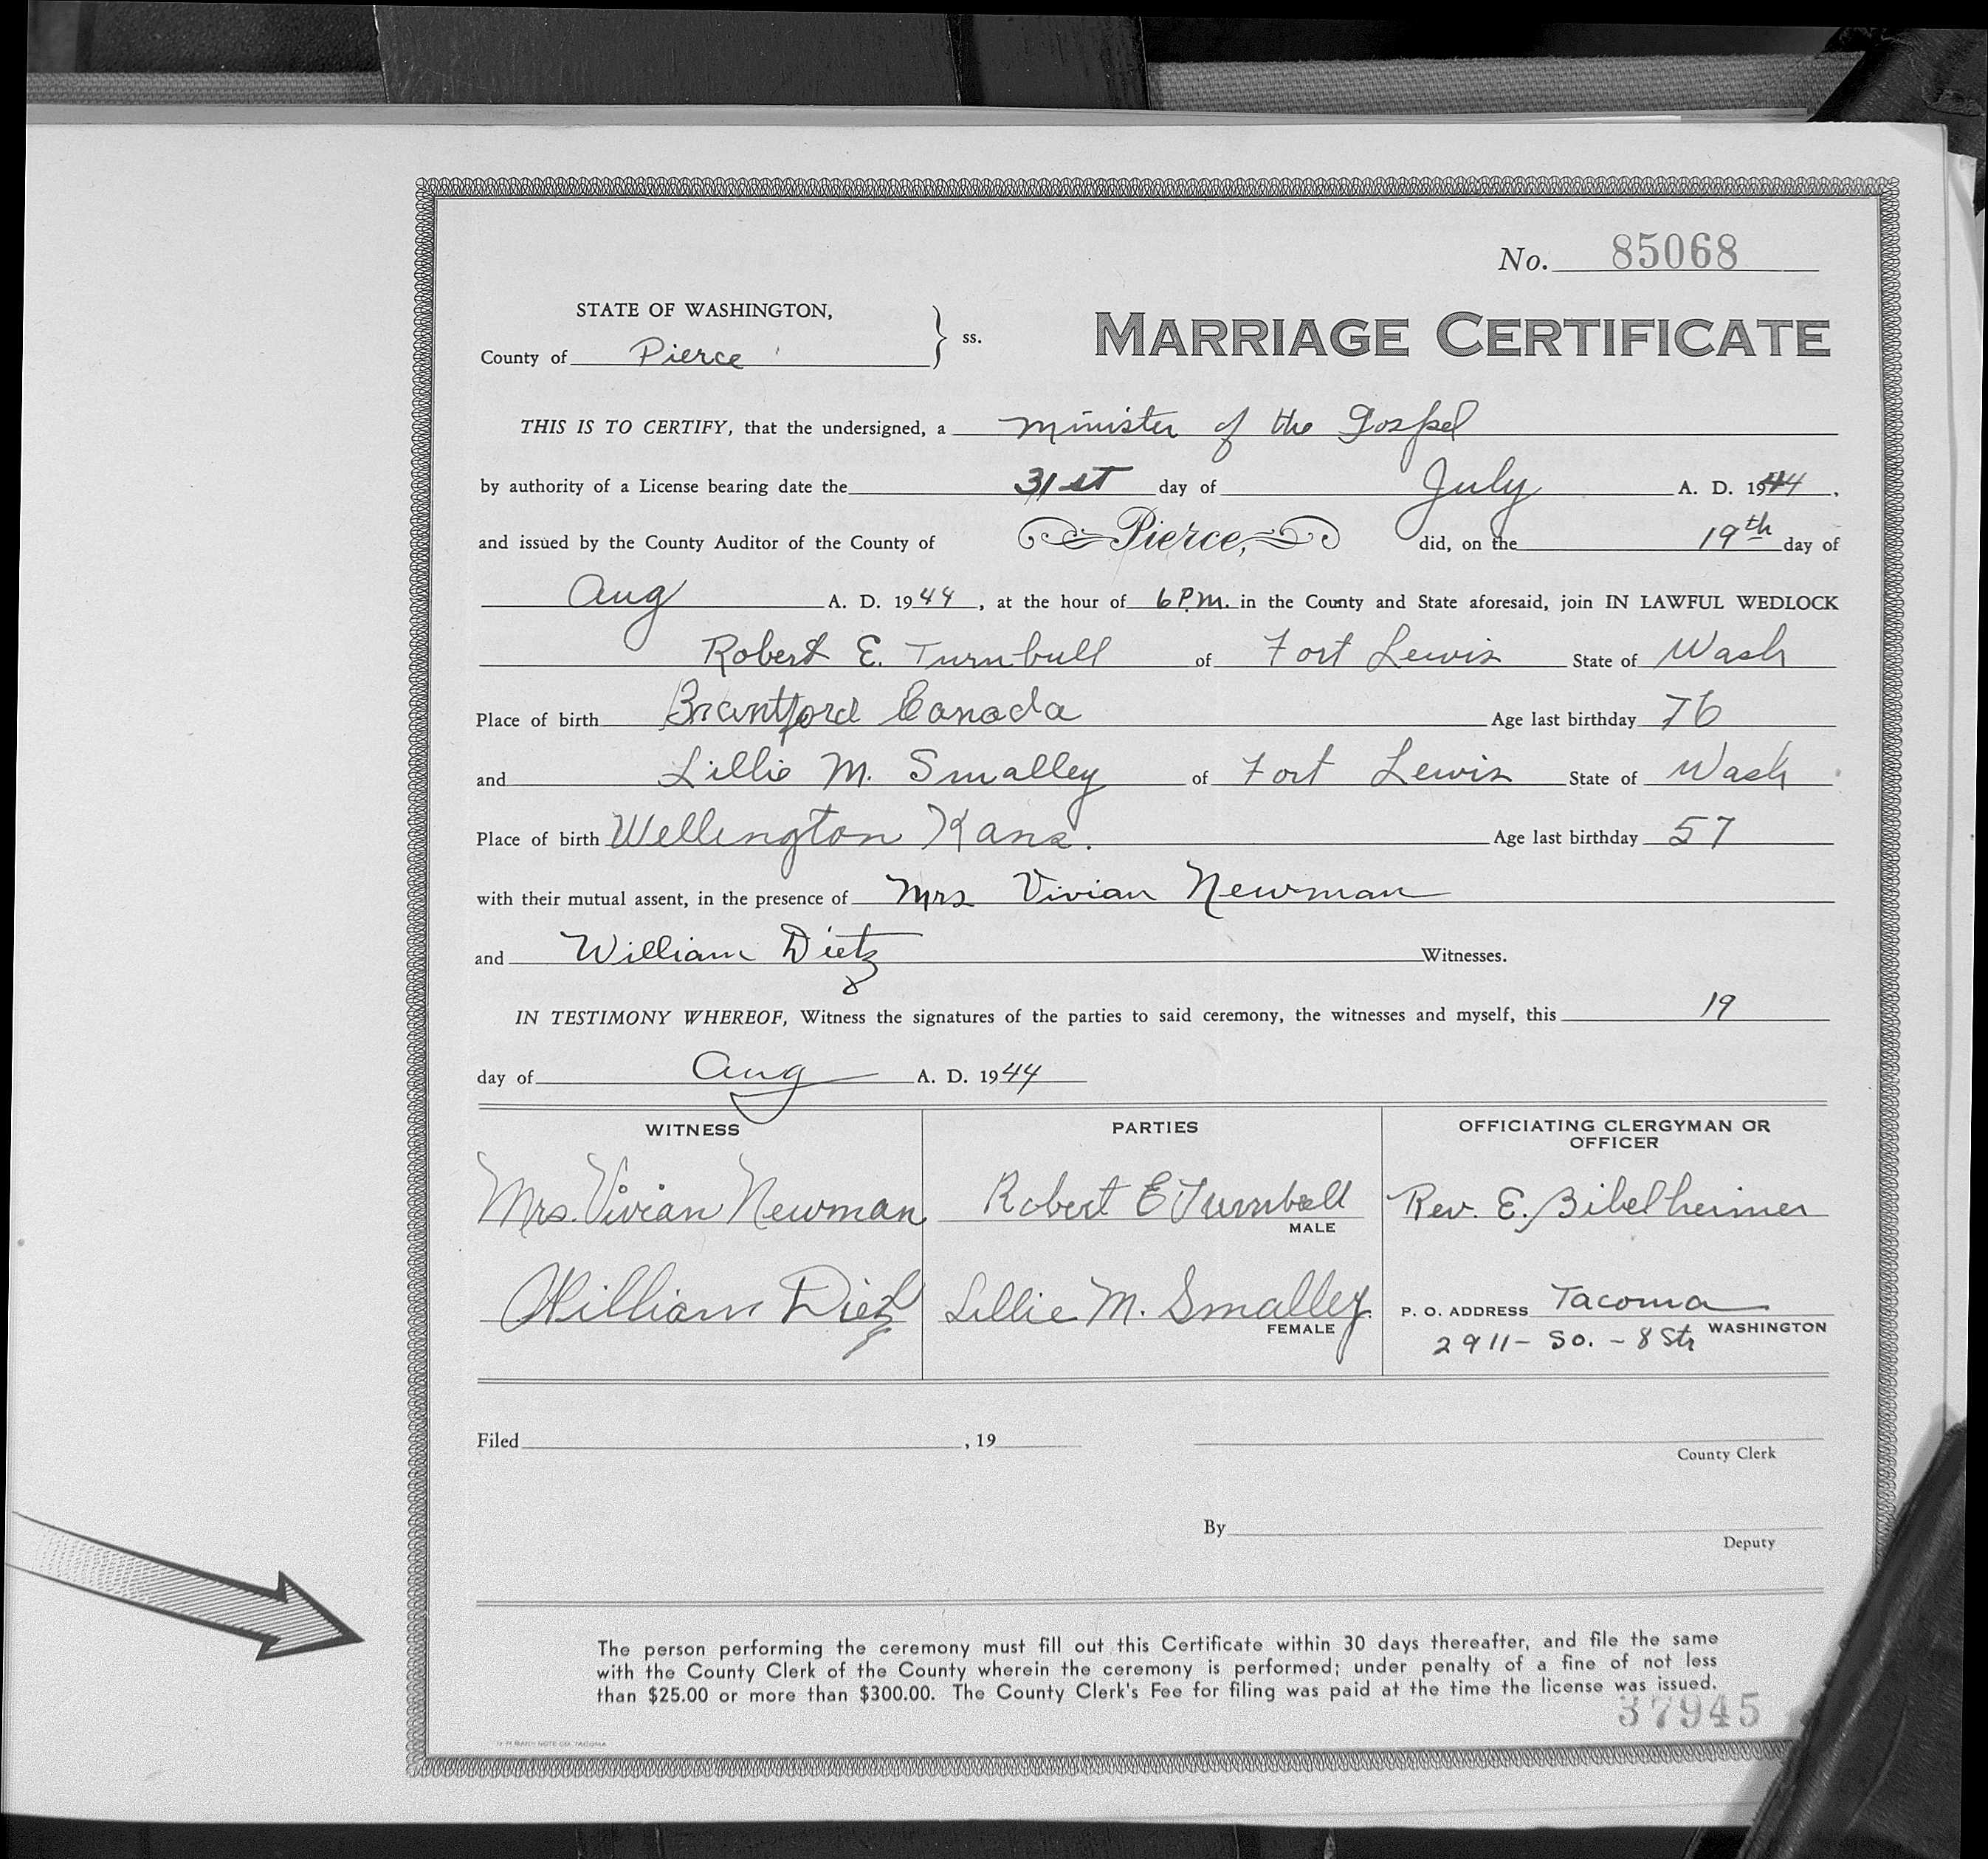 No. 85068
STATE OF WASHINGTON,
County of Pierce } ss.
MARRIAGE CERTIFICATE
THIS IS TO CERTIFY, that the undersigned, a minister of the Gospel
by authority of a License bearing date the 31st day of July A. D. 1944.
and issued by the County Auditor of the County of Pierce, did, on the 19th day of
Aug A. D. 1944, at the hour of 6 P.M. in the County and State aforesaid, join IN LAWFUL WEDLOCK
Robert E. Turnbull of Fort Lewis State of Wash
Place of birth Brantford Canada Age last birthday 76
and Lillie M. Smalley of Fort Lewis State of Wash
Place of birth Wellington Kans. Age last birthday 57
with their mutual assent, in the presence of Mrs Vivian Newman
and William Dietz Witnesses.
IN TESTIMONY WHEREOF, Witness the signatures of the parties to said ceremony, the witnesses and myself, this 19
day of Aug A. D. 1944
WITNESS
Mrs. Vivian Newman
William Dietz
PARTIES
Robert E Turnbull
MALE
Lillie M. Smalley
FEMALE
OFFICIATING CLERGYMAN OR
OFFICER
Rev. E. Bibelheimer
P. O. ADDRESS Tacoma
WASHINGTON
2911 - So. - 8 Str
Filed , 19
County Clerk
By
Deputy
The person performing the ceremony must fill out this Certificate within 30 days thereafter, and file the same
with the County Clerk of the County wherein the ceremony is performed; under penalty of a fine of not less
than $25.00 or more than $300.00. The County Clerk's Fee for filing was paid at the time the license was issued.
37945
BANK NOTE CO. TACOMA